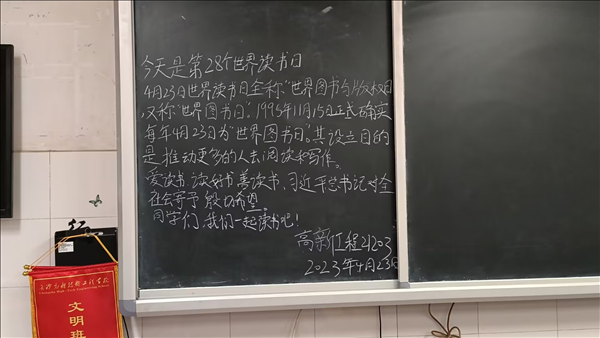 今天是第28个世界读书日
4月23日世界读书日全称"世界图书与版权日
又称"世界图书日"。1995年11月15日正式确实
每年4月23日为"世界图书日。其设立目的
是推动更多的人去阅读和写作。
爱读书、读好书、善读书、习近平总书记对全
社会寄予殷切希望。
同学们,我们一起读书吧!
高新工程21203
2023年4月23日
文明班